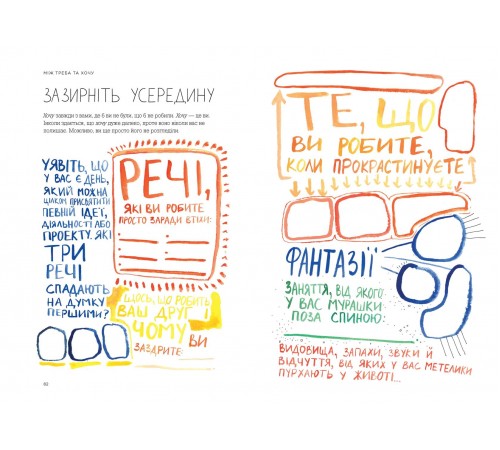 МІЖ ТРЕБА ТА ХОЧУ
ЗАЗИРНІТЬ УСЕРЕДИНУ
Хочу завжди з вами, де б ви не були, що б не робили. Хочу — це ви.
Інколи здається, що хочу дуже далеко, проте воно ніколи вас не
полишає. Можливо, ви ще просто його не розгледіли.
УЯВІТЬ, ЩО
У ВАС Є ДЕНЬ,
ЯКИЙ МОЖНА
ЦІЛКОМ ПРИСВЯТИТИ
ПЕВНІЙ ІДЕЇ,
ДІЯЛЬНОСТІ АБО
ПРОЕКТУ. ЯКІ
ТРИ
РЕЧІ
СПАДАЮТЬ
НА ДУМКУ
ПЕРШИМИ?
РЕЧІ,
ЯКІ ВИ РОБИТЕ
ПРОСТО ЗАРАДИ ВТІХИ:
ЩОСЬ, ЩО РОБИТЬ
ВАШ ДРУГ І
ЧОМУ
ВИ
ЗАЗДРИТЕ:
62
ТЕ, ЩО
ВИ РОБИТЕ,
КОЛИ ПРОКРАСТИНУЄТЕ
ФАНТАЗІЇ
ЗАНЯТТЯ, ВІД ЯКОГО
У ВАС МУРАШКИ
ПОЗА СПИНОЮ:
ВИДОВИЩА, ЗАПАХИ, ЗВУКИ Й
ВІДЧУТТЯ, ВІД ЯКИХ У ВАС МЕТЕЛИКИ
ПУРХАЮТЬ У ЖИВОТІ...